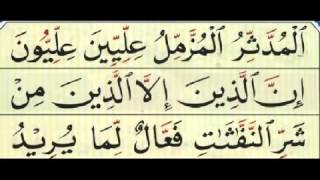 اَلْمُدَّثِّرُ اَلْمُزَّمِّلُ عِلِّيِّينَ عِلِّيُّونَ
اِنَّ الَّذِينَ اِلَّا الَّذِينَ مِنْ
شَرِّ النَّفّٰثٰتِ فَعَّالٌ لِّمَا يُرِيْدُ